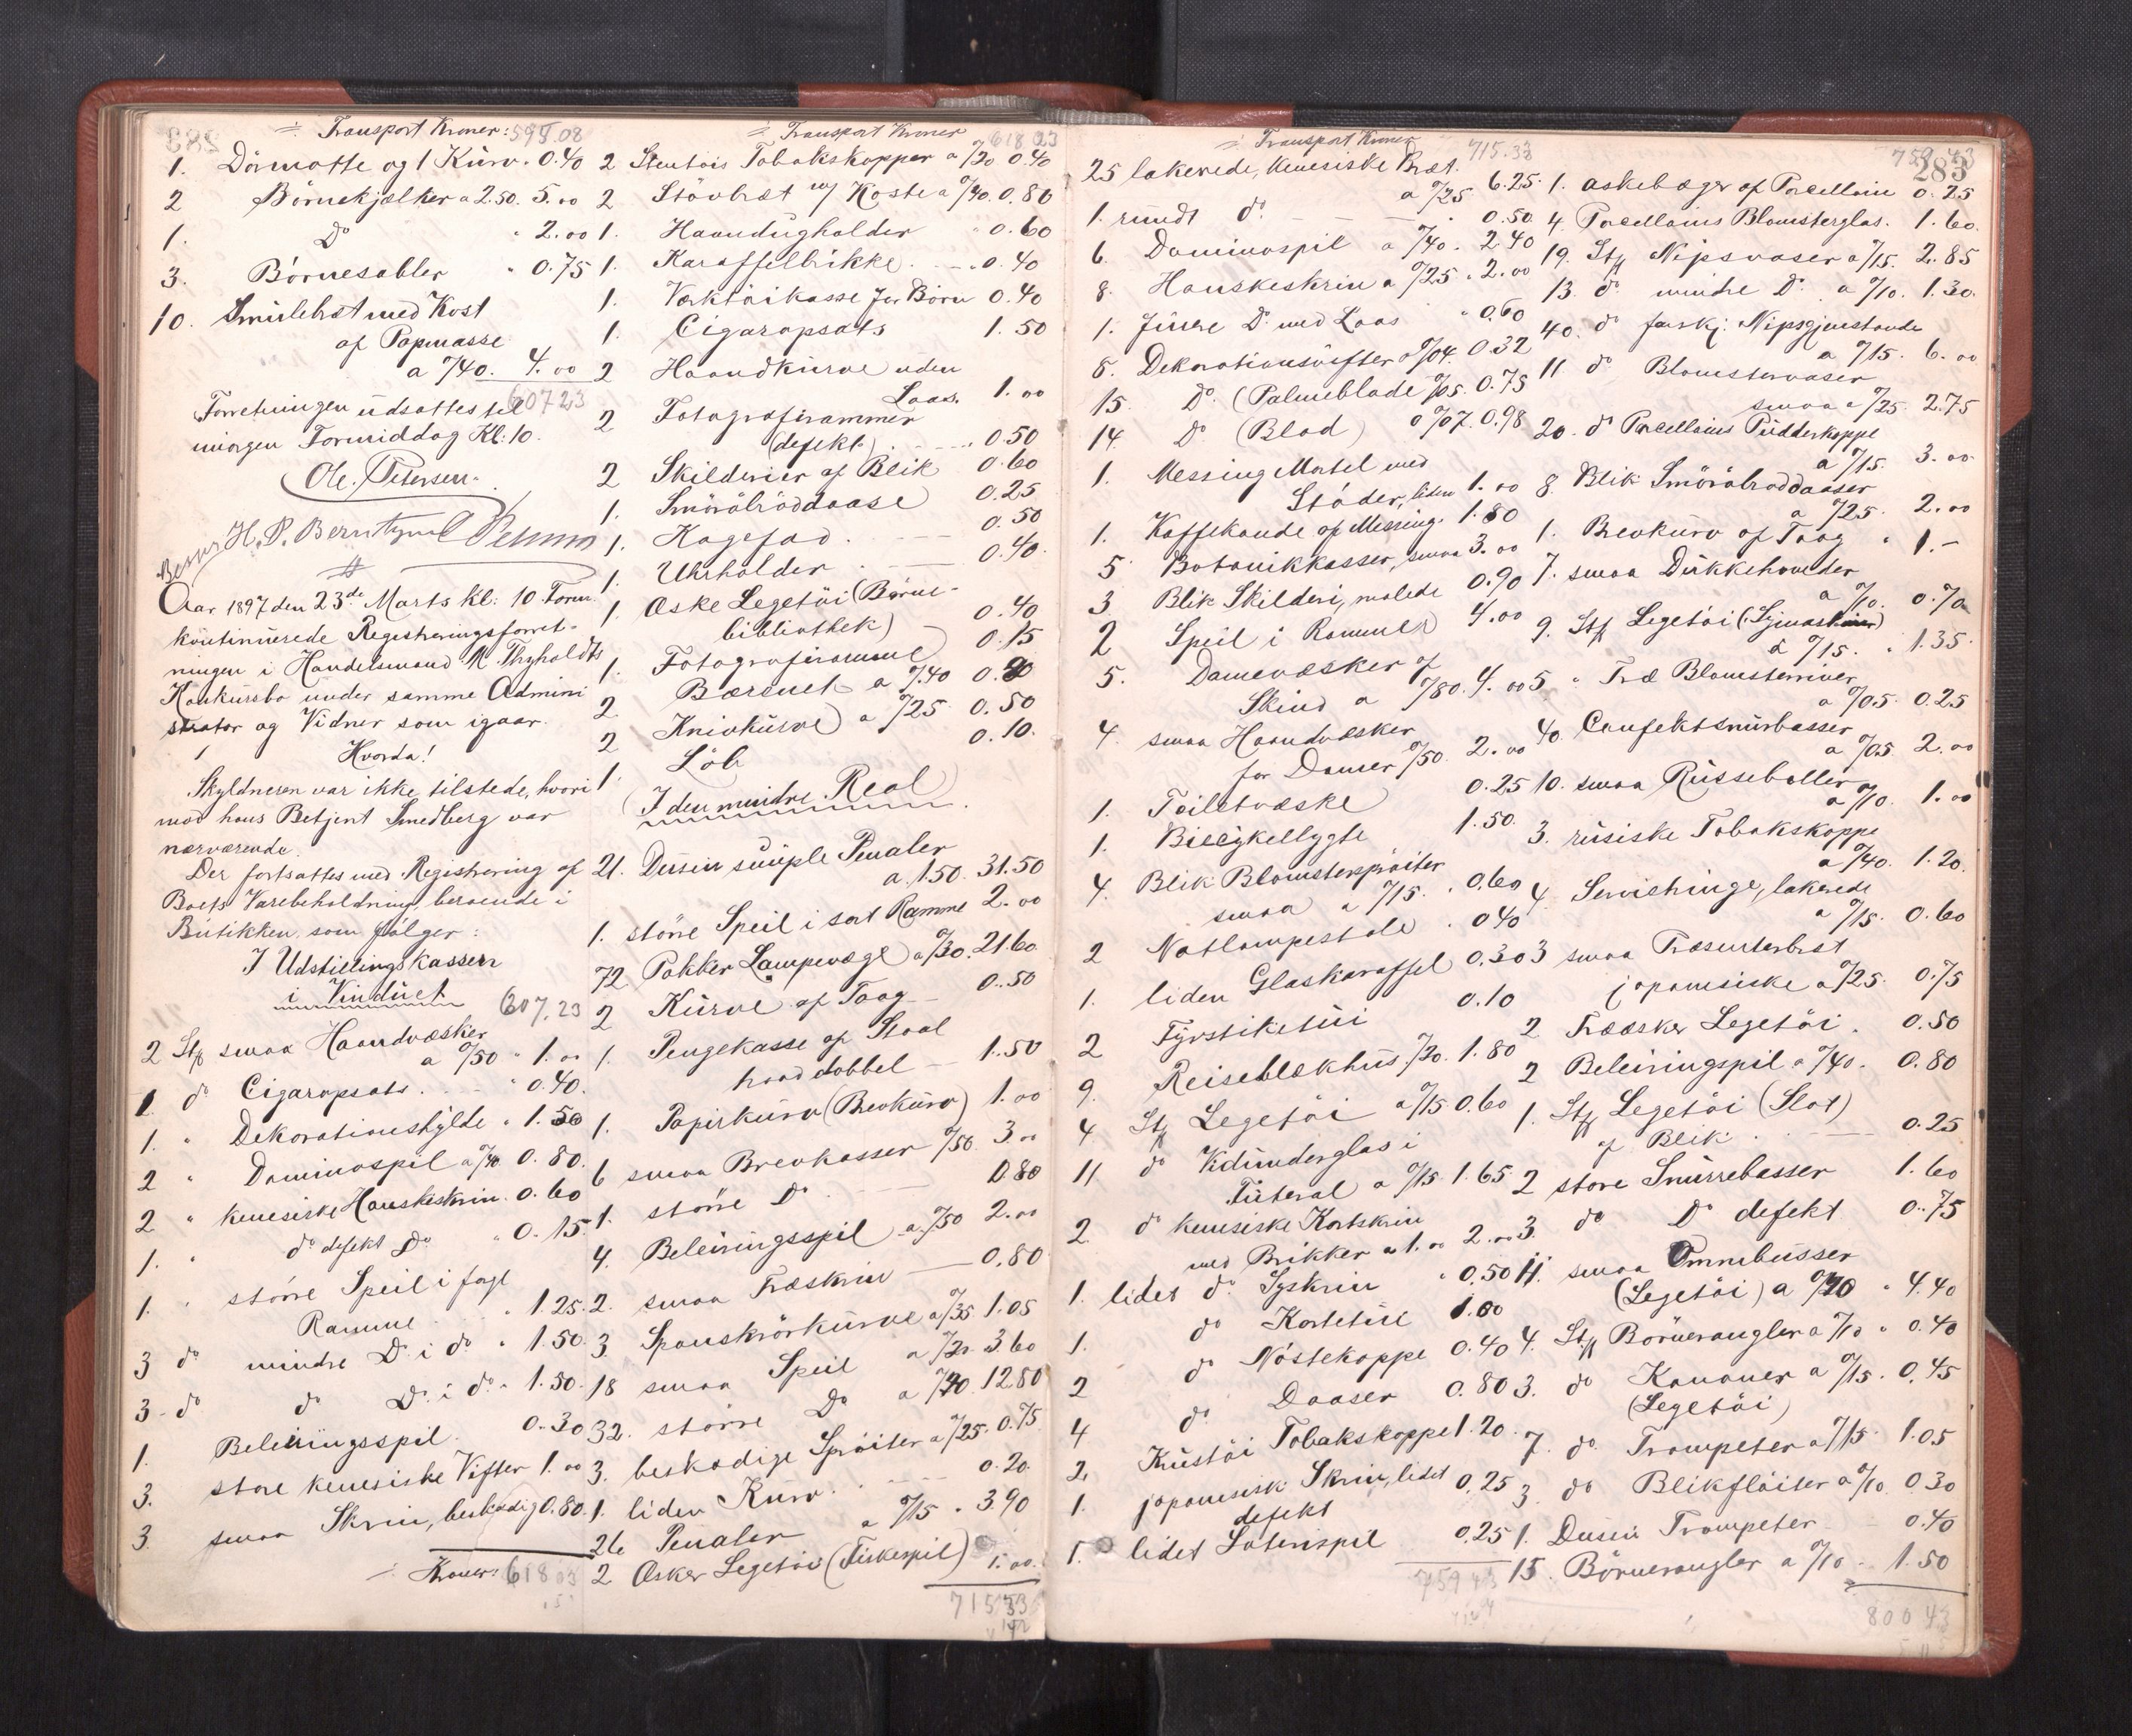 ÷ Transport Kroner: 595.08
1. Dörmatte og 1 Kurv. 0.40
2 Börnekjælker a 2.50. 5.00
1. Do " 2.00
3. Börnesabler " 0.75
10. Smulebræt med Kost
af Papmasse
a %40. 4.00
607.23
Forretningen udsattes til
imorgen Formiddag Kl: 10.
Ole. Petersen.
H. P. Berntzen
Aar 1897 den 23de Marts kl: 10 Form.
kontinuerede Registreringsforret-
ningen i Handelsmand M. Thyholdts
Konkursbo under samme Admini
strator og Vidner som igaar.
Hvorda!
Skyldneren var ikke tilstede, hvori
mod hans Betjent Smedberg var
nærværende.
Der fortsattes med Registrering af
Boets Varebeholdning beroende i
Butikken som fölger:
I Udstillingskassen
i Vinduet
607.23
2 Stk smaa Haandvæsker
a %50 " 1.00
1. do Cigaropsats. " 0.40.
1. " Dekorationshylde " 1.50
2 " Dominospil a %40 0.80.
2 " kinesiske Hanskeskrin. 0.60
1. " do defekt Do " 0.15.
1. " större Speil i
Ramme " 1.25.
3 do mindre Do i do " 1.50.
3 - do do Do i do " 1.50.
1. Beleiringsspil. 0.30
3. store kinesiske Vifter 1.00
3. smaa Skrin, beskadig 0.80.
÷ Kroner: 618.03
÷ Transport Kroner 618 03
2 Stentöis Tobakskopper a %20 0.40
2 Stövbræt m/ Koste a %40. 0.80
1. Haandugholder " 0.60
1. Karaffelbrikke. 0.40
1. Værktöikasse for Börn 0.40
1. Cigaropsats 1.50
2 Haandkurve uden
Laas. 1.00
2 Fotografirammer
(defekt) 0.50
2 Skilderier af Blik 0.60
1. Smörbröddaase 0.25
1. Kagefad. 0.50
1. Uhrholder 0.40.
1. Æske Legetöi (Börne-
bibliothek) 0.40
1. Fotografiramme 0.15
2 Bærenet a %40 0.80
2 Knivkurve a %25 0.50
1. Löb 0.10.
(I den mindre Real)
21. Dusin simple Penaler
a. 1.50. 31.50
1. större Speil i sort Ramme 2.00
72. Pakker Lampevæge a %30. 21.60
2 Kurve af Taag 0.50
1. Pengekasse af Staal
hvad dobbel 1.50
1. Papirkurv (Brevkurv) 1.00
6 smaa Brevkasser %50 3.00
1. större Do 0.80
4. Beleiringsspil a. %50 2.00
2. smaa Træskrin 0.80
3. Spanskrörkurve a %35 1.05
18 smaa Speil a %20 3.60
32. större Do a %40. 12.80
3. beskadige Spröiter a %25. 0.75
1. liden Kurv. 0.20.
26 Penaler a %15 " 3.90
2 Æsker Legetöi (Fiskespil) 1.00.
715 33
÷ Transport Kroner 715.33
25 lakerede, kinesiske Bræt.
a %25. 6.25.
1. rundt do. 0.50
6. Dominospil a %40. 2.40
8. Hanskeskrin a %25 " 2.00
1. Do med Laas " 0.60
8. Dekorationsvifter a %04. 0.32
15. Do. (Palmeblade %05. 0.75
14. Do (Blad) a %07. 0.98
1. Messing Mortel med
Stöder, liden 1.00
1. Kaffekande af Messing. 1.80
5 Botanikkasser, smaa 3.00
3 Blik Skilderi, malede 0.90
2 Speil i Rammer 4.00
5. Damevæsker af
Skind a %80. 4.00
4. smaa Haandvæsker
for Damer %50. 2.00
1. Toiletvæske 0.25
1. Bicykellygte 1.50.
4. Blik Blomsterspröiter
smaa a %15. " 0.60
2 Natlampestole " 0.40
1. liden Glaskaraffel 0.30
2 Fyrstiketui 0.10
9. Reiseblækhus %20. 1.80
4 Stk Legetöi a %15 0.60
11 do Vidunderglas i
Futeral a %15 1.65
2. do kinesiske Kortskrin
med Brikker a 1.00 2.00
1. lidet do Syskrin " 0.50
1. do Kortetui 1.00
2 do Nöstekoppe 0.40
4 do Daaser 0.80
2. Krustöi Tobakskoppe 1.20.
1. japanesisk Skrin, lidet
defekt 0.25
1. lidet Loterispil 0.25
759 43
759.43
283
1. askebæger af Porcellain 0.25
4. Porcellains Blomsterglas. 1.60.
19. Stk Nipsvaser a %15. 2.85
13. do mindre Do. a %10. 1.30.
40. do forskj. Nipsgjenstande
a %15. 6.00
11 do Blomstervaser
smaa a %25. 2.75
20. do Porcellains Pudderkoppe
a %15. 3.00
8. Blik Smörbröddaaser
a %25. 2.00
1. Brevkurv af Taag " 1.-
7. smaa Dukkehoveder
a %10. 0.70
9. Stk Legetöi
a %15. " 1.35.
5 " Træ Blomsterriver
a %05. 0.25
40. Confektsnurbasser
a %05. 2.00
10. smaa Russeboller
a %10. 1.00
3. rusiske Tobakskoppe
a %40. 1.20.
4. Servietringe, lakerede
a %15. 0.60
3 smaa Træsmörbræt
japanesiske a %25. 0.75
2 Trææsker Legetöi. 0.50
2 Beleiringspil a %40. 0.80
1. Stk Legetöi (Slot)
af Blik. 0.25
2 store Snurrebasser 1.60
3. do Do defekt 0.75
11. smaa Omnibusser
(Legetöi) a %40 " 4.40
4. Stk Börnerangler a %10 " 0.40
3. do Kanoner a %15. 0.45
(Legetöi)
7. do. Trompeter a %15. 1.05
3. do Blikflöiter a %10. 0.30
1. Dusin Trompeter 0.40
15. Börnerangler a %10. 1.50
800 43